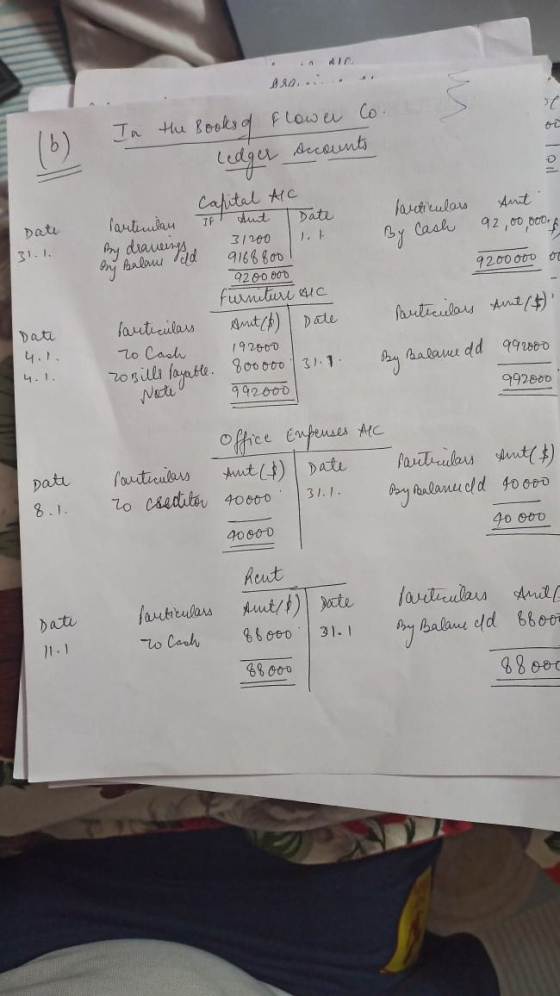 (b) In the Books of Flower Co.
Ledger Accounts
Capital A/C
Date Particulars JF Amt Date Particulars Amt
31.1. By drawings 31200 1.1 By Cash 92,00,000
By Balance c/d 9168800
9200000 9200000
Furniture A/C
Date Particulars Amt($) Date Particulars Amt($)
4.1. To Cash 192000
4.1. To Bills Payable. 800000 31.1. By Balance c/d 992000
Note 992000 992000
Office Expenses A/C
Date Particulars Amt($) Date Particulars Amt($)
8.1. To Creditor 40000 31.1. By Balance c/d 40000
40000 40000
Rent
Date Particulars Amt($) Date Particulars Amt(
11.1 To Cash 88000 31.1 By Balance c/d 8800
88000 88000